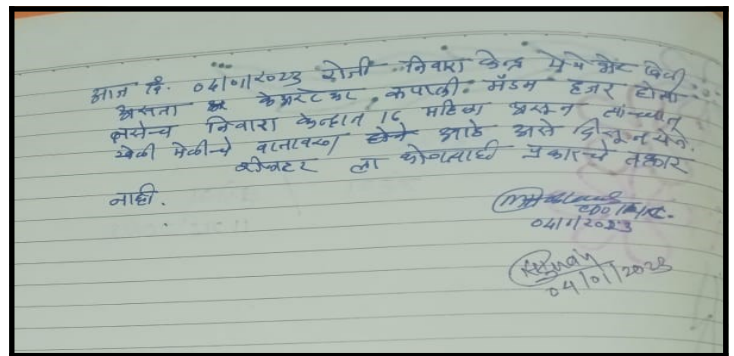 आज दि. 04/01/2023 रोजी निवारा केन्द्र येथे भेट दिली
असता केअरटेकर कपाली मॅडम हजर होत्या
तसेच निवारा केन्द्रात 16 महिला असून त्यांच्यात
खेळी मेळीचे वातावरण होने आहे असे दिसून येते.
शेल्टर ला कोणत्याही प्रकारचे तक्रार
नाही.
04/1/2023
04/01/2023